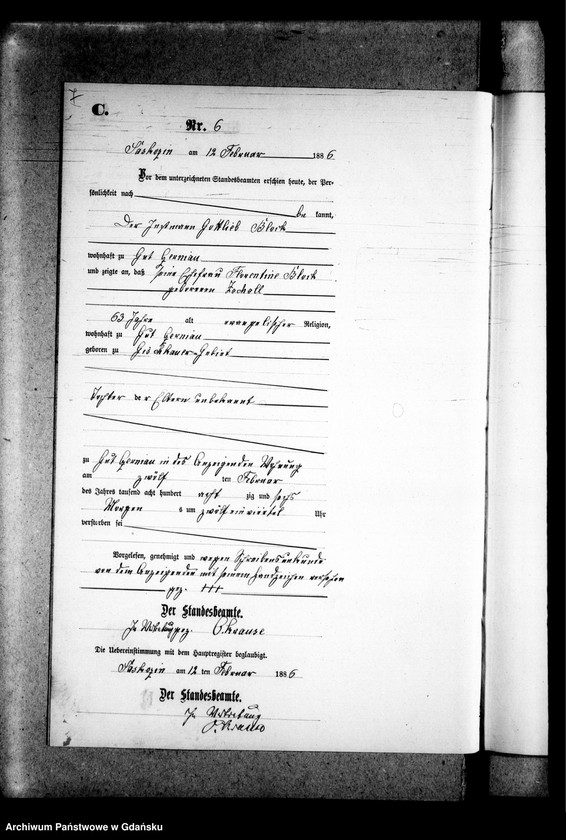 C.
Nr. 6
Saskozin am 12 Februar 1886.
Vor dem unterzeichneten Standesbeamten erschien heute, der Per-
sönlichkeit nach
be kannt,
Der Instmann Gottlieb Block
wohnhaft zu Gut
und zeigte an, daß seine Ehefrau Florentine Block
geborenen
63 Jahre alt evangelischer Religion,
wohnhaft zu Gut
geboren zu
Tochter der Eltern unbekannt
zu Gut in des Anzeigenden Wohnung
am zwölf ten Februar
des Jahres tausend acht hundert acht zig und sechs
Morgen s um zwölfeinviertel Uhr
verstorben sei
Vorgelesen, genehmigt und wegen Schreibensunkunde
von dem Anzeigenden mit seinem Handzeichen versehen
gez. +++
Der Standesbeamte.
In Vertretung gez. O Krause
Die Uebereinstimmung mit dem Hauptregister beglaubigt.
Saskozin am 12 ten Februar 1886
Der Standesbeamte.
In Vertretung
O. Krause
Archiwum Państwowe w Gdańsku